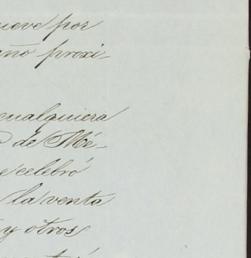 nueve por
año proxi-
cualquiera
de Mé-
e celebró
la venta
y otros